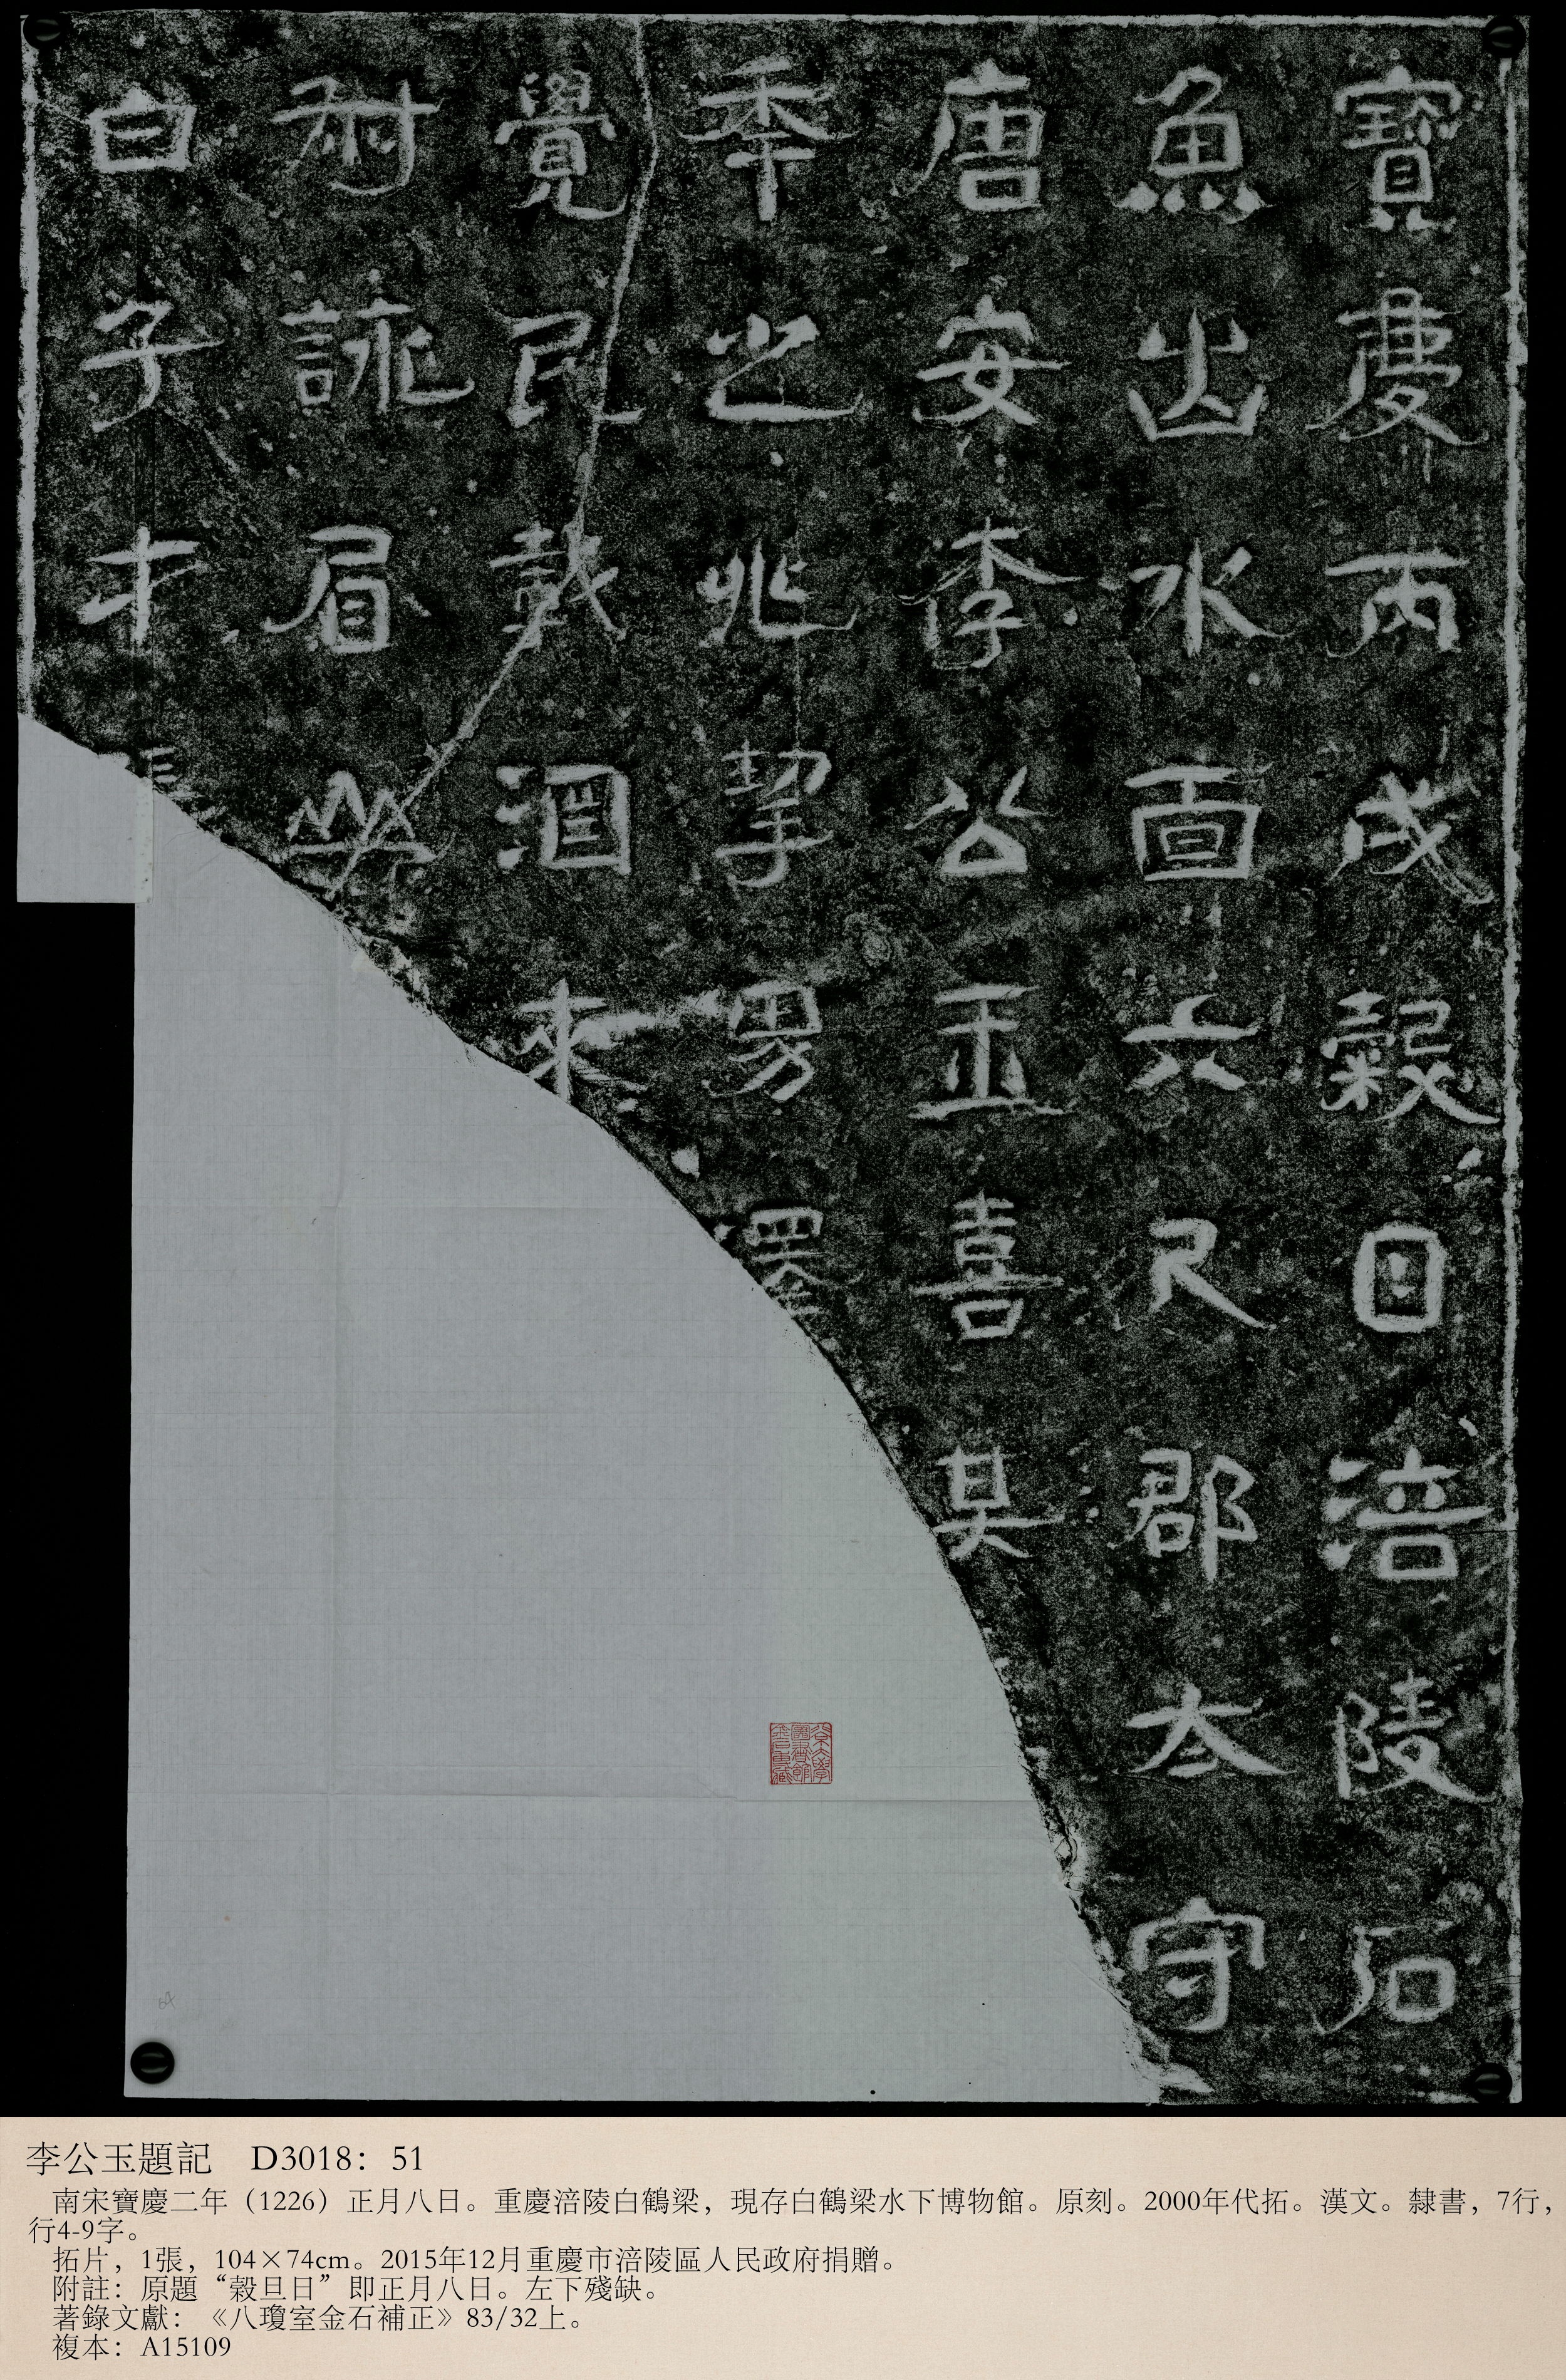 寶慶丙戌穀日涪陵石
魚出水面六尺郡太守
唐安李公玉喜其
秊之兆挈男澤
覺民載酒來
耐詠眉山
白子才
李公玉題記 D3018：51
南宋寶慶二年（1226）正月八日。重慶涪陵白鶴梁，現存白鶴梁水下博物館。原刻。2000年代拓。漢文。隸書，7行，
行4-9字。
拓片，1張，104×74cm。2015年12月重慶市涪陵區人民政府捐贈。
附註：原題“穀旦日”即正月八日。左下殘缺。
著錄文獻：《八瓊室金石補正》83/32上。
複本：A15109